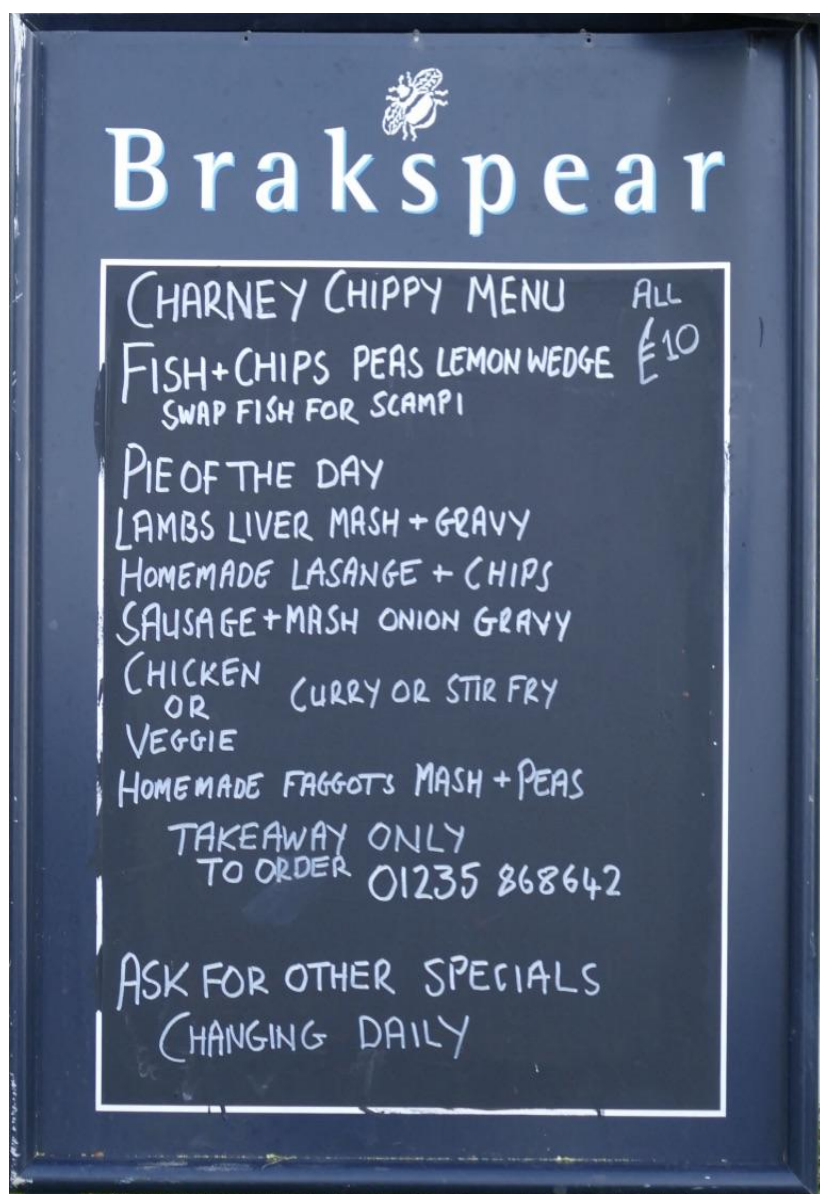 Brakspear
CHARNEY CHIPPY MENU ALL
FISH+CHIPS PEAS LEMON WEDGE £10
SWAP FISH FOR SCAMPI
PIE OF THE DAY
LAMBS LIVER MASH + GRAVY
HOMEMADE LASANGE + CHIPS
SAUSAGE+MASH ONION GRAVY
CHICKEN
OR CURRY OR STIR FRY
VEGGIE
HOMEMADE FAGGOTS MASH + PEAS
TAKEAWAY ONLY
TO ORDER 01235 868642
ASK FOR OTHER SPECIALS
CHANGING DAILY